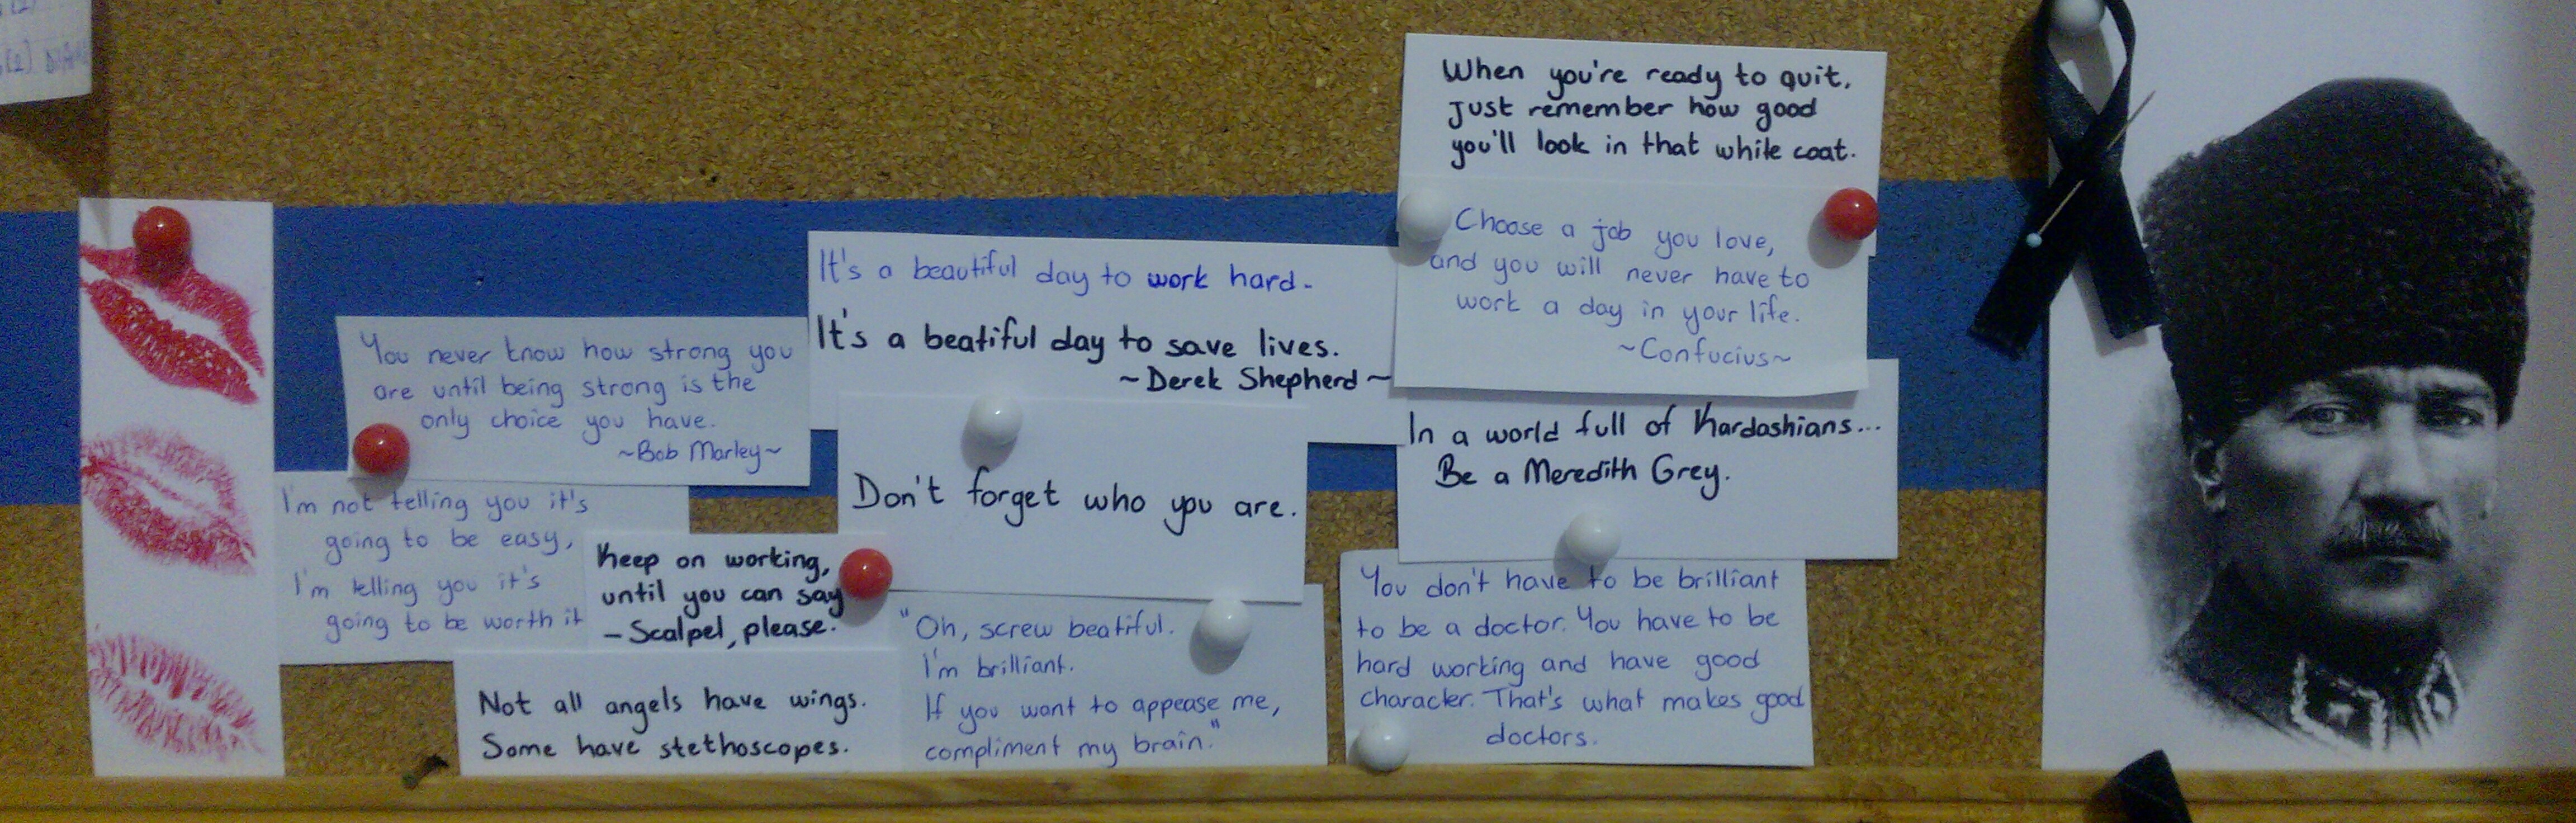 When you're ready to quit,
just remember how good
you'll look in that while coat.
Choose a job you love,
and you will never have to
work a day in your life.
~Confucius~
It's a beautiful day to work hard.
It's a beatiful day to save lives.
~Derek Shepherd~
You never know how strong you
are until being strong is the
only choice you have.
~Bob Marley~
In a world full of Kardashians...
Be a Meredith Grey.
Don't forget who you are.
I'm not telling you it's
going to be easy,
I'm telling you it's
going to be worth it
Keep on working,
until you can say
- Scalpel, please.
"Oh, screw beatiful.
I'm brilliant.
If you want to appease me,
compliment my brain."
You don't have to be brilliant
to be a doctor. You have to be
hard working and have good
character. That's what makes good
doctors.
Not all angels have wings.
Some have stethoscopes.